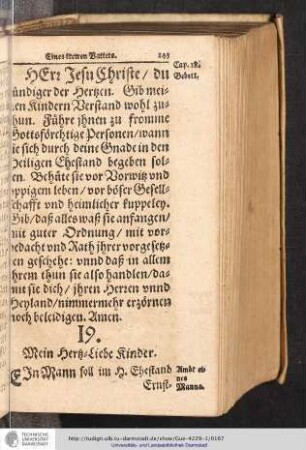 Eines trewen Vatters. 245
HErr Jesu Christe/ du Cap. 18.
ündiger der Hertzen. Gib mei- Gebett.
nen Kindern Verstand wohl zu-
hun. Führe jhnen zu fromme
Gottsförchtige Personen/ wann
sie sich durch deine Gnade in den
heiligen Ehestand begeben sol-
len. Behüte sie vor Vorwitz und
üppigem leben/ vor böser Gesell-
schafft vnd heimlicher kuppeley.
Gib/ daß alles waß sie anfangen/
mit guter Ordnung/ mit vor-
bedacht vnd Rath jhrer vorgesetz-
ten geschehe: vnnd daß in allem
jhrem thun sie also handlen/ da-
mit sie dich/ jhren Herren vnnd
Heyland/ nimmermehr erzörnen
noch beleidigen. Amen.
19.
Mein Hertz-Liebe Kinder.
EIn Mann soll im H. Ehestand
Ernst-
Manns.
TECHNISCHE
UNIVERSITÄT
DARMSTADT
http://tudigit.ulb.tu-darmstadt.de/show/Gue-4229-1/0167
Universitäts- und Landesbibliothek Darmstadt